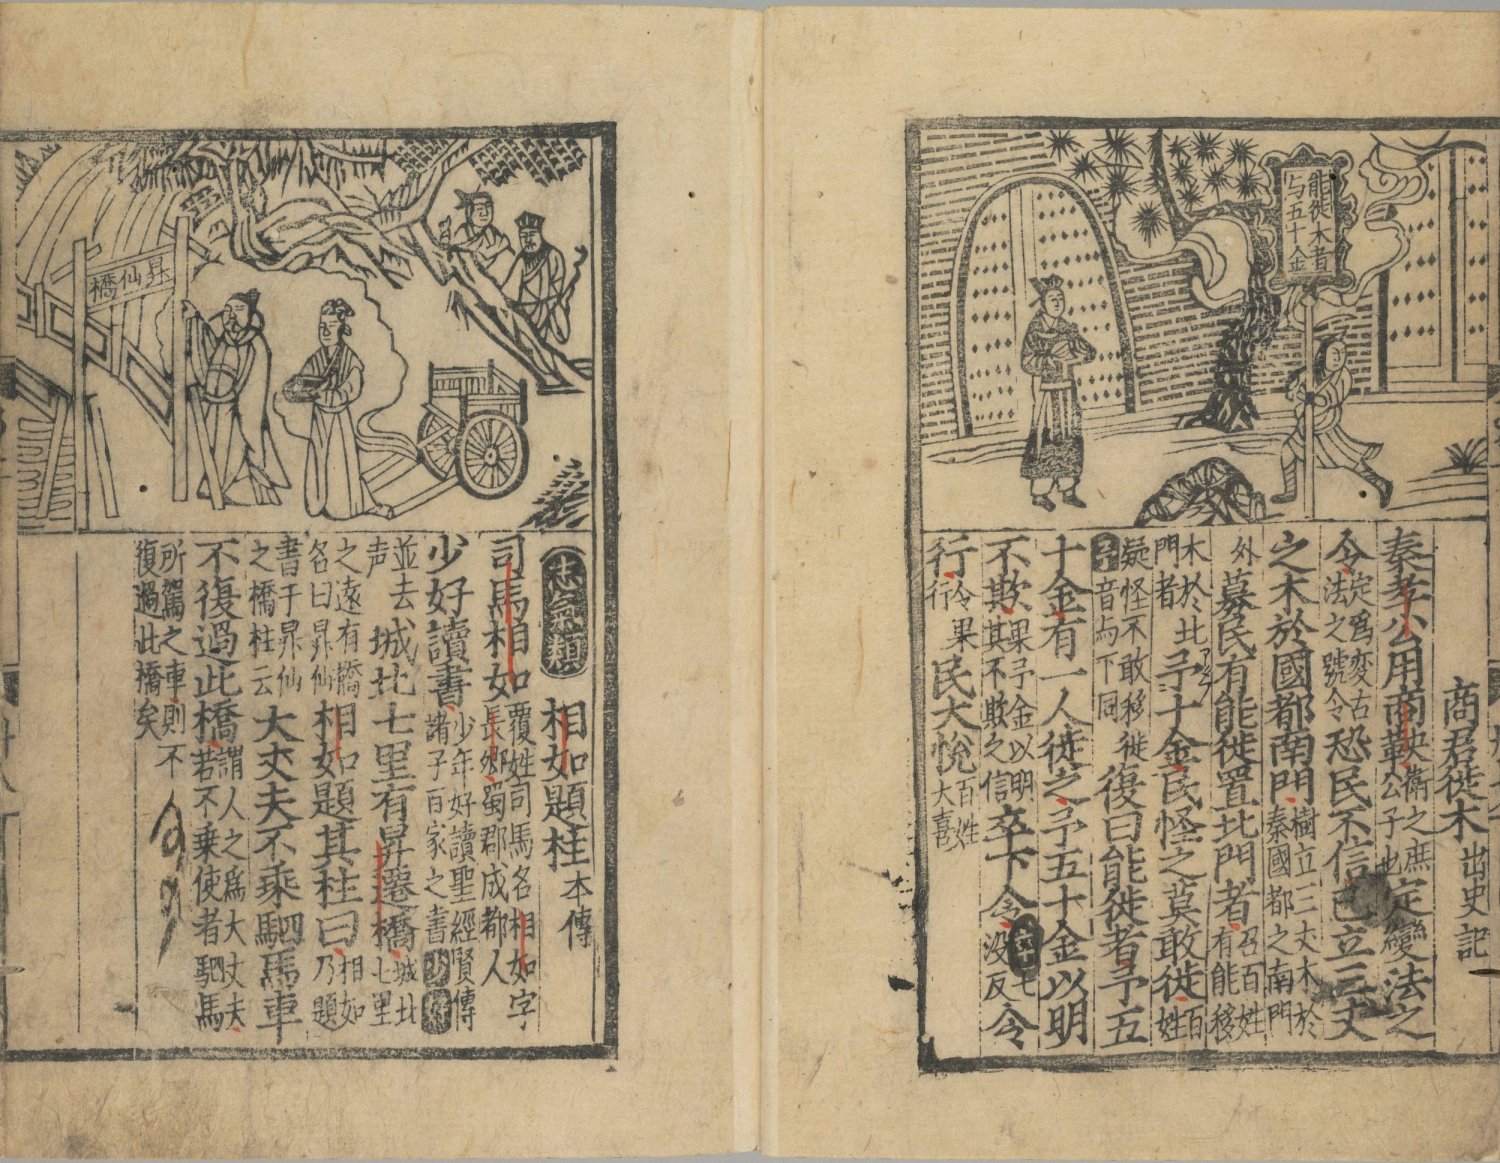 能徙木者
与五十金
商君徙木 出史記
秦孝公用商鞅 衛之庶公子也 定變法之
令 定爲変古法之號令 恐民不信 已立三丈
之木於國都南門 樹立三丈木於秦國都之南門
外 募民有能徙置北門者 召百姓有能移
木於北門者 予十金 民怪之莫敢徙 百姓
疑怪不敢移徙 予音与下同 復曰能徙者予五
十金 有一人徙之 予五十金 以明
不欺 果予金以明其不欺之信 卒下令 没反 令
行 令果行 民大悅 百姓大喜
昇仙橋
志氣類 相如題柱 本傳
司馬相如 覆姓司馬名相如字長卿 蜀郡成都人
少好讀書 少年好讀聖經賢傳諸子百家之書 少好
並去声 城北七里有昇遷橋 城北七里
之遠有橋名曰昇仙 相如題其柱曰 相如乃題
書于昇仙之橋柱云 大丈夫不乘駟馬車
不復過此橋 謂人之爲大丈夫若不乗使者駟馬
所駕之車則不復過此橋矣